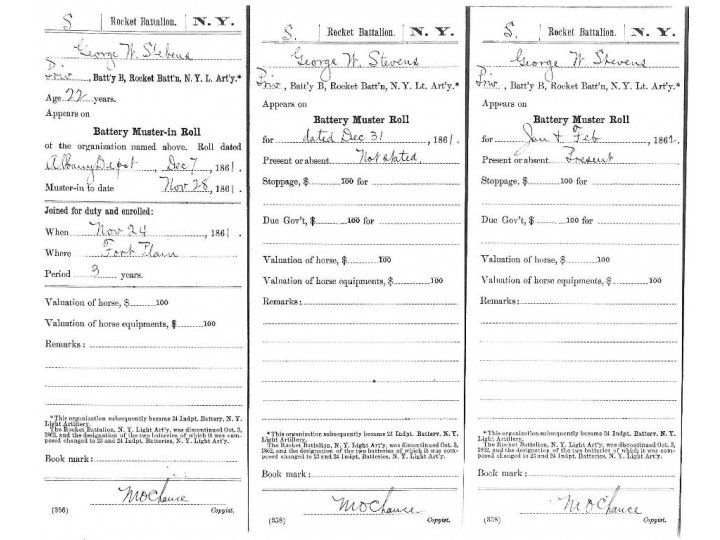 S | Rocket Battalion. | N. Y.
George W. Stevens
Priv., Batt'y B, Rocket Batt'n, N. Y. L. Art'y.*
Age 22 years.
Appears on
Battery Muster-in Roll
of the organization named above. Roll dated
Albany Depot, Dec 7, 1861.
Muster-in to date Nov 28, 1861.
Joined for duty and enrolled:
When Nov 24, 1861.
Where Fort Plain
Period 3 years.
Valuation of horse, $ 100
Valuation of horse equipments, $ 100
Remarks:
*This organization subsequently became 24 Indpt. Battery, N. Y.
Light Artillery.
The Rocket Battalion, N. Y. Light Art'y, was discontinued Oct. 3,
1862, and the designation of the two batteries of which it was com-
posed changed to 23 and 24 Indpt. Batteries, N. Y. Light Art'y.
Book mark:
McChance
(356) Copyist.
S. | Rocket Battalion. | N. Y.
George W. Stevens
Priv., Bat'y B, Rocket Batt'n, N. Y. Lt. Art'y.*
Appears on
Battery Muster Roll
for dated Dec 31, 1861.
Present or absent Not stated.
Stoppage, $ 100 for
Due Gov't, $ 100 for
Valuation of horse, $ 100
Valuation of horse equipments, $ 100
Remarks:
*This organization subsequently became 24 Indpt. Battery, N. Y.
Light Artillery.
The Rocket Battalion, N. Y. Light Art'y, was discontinued Oct. 3,
1862, and the designation of the two batteries of which it was com-
posed changed to 23 and 24 Indpt. Batteries, N. Y. Light Art'y.
Book mark:
McChance
(358) Copyist.
S. | Rocket Battalion. | N. Y.
George W Stevens
Priv., Bat'y B, Rocket Batt'n, N. Y. Lt. Art'y.*
Appears on
Battery Muster Roll
for Jan & Feb, 1862.
Present or absent Present
Stoppage, $ 100 for
Due Gov't, $ 100 for
Valuation of horse, $ 100
Valuation of horse equipments, $ 100
Remarks:
*This organization subsequently became 24 Indpt. Battery, N. Y.
Light Artillery.
The Rocket Battalion, N. Y. Light Art'y, was discontinued Oct. 3,
1862, and the designation of the two batteries of which it was com-
posed changed to 23 and 24 Indpt. Batteries, N. Y. Light Art'y.
Book mark:
McChance
(358) Copyist.